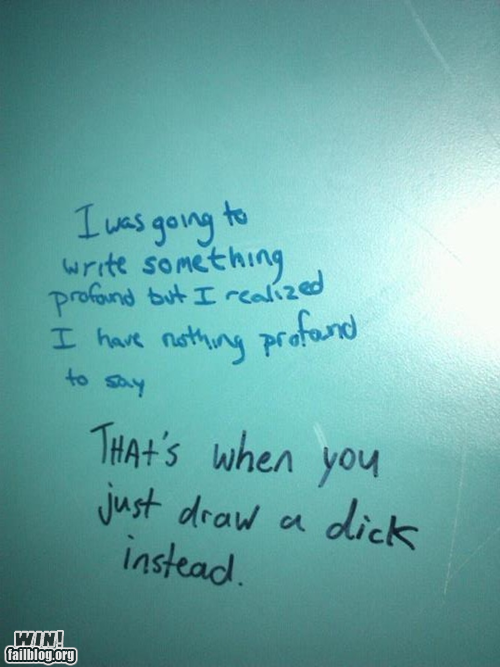 I was going to
write something
profound but I realized
I have nothing profound
to say
THAt's when you
just draw a dick
instead.
WIN!
failblog.org